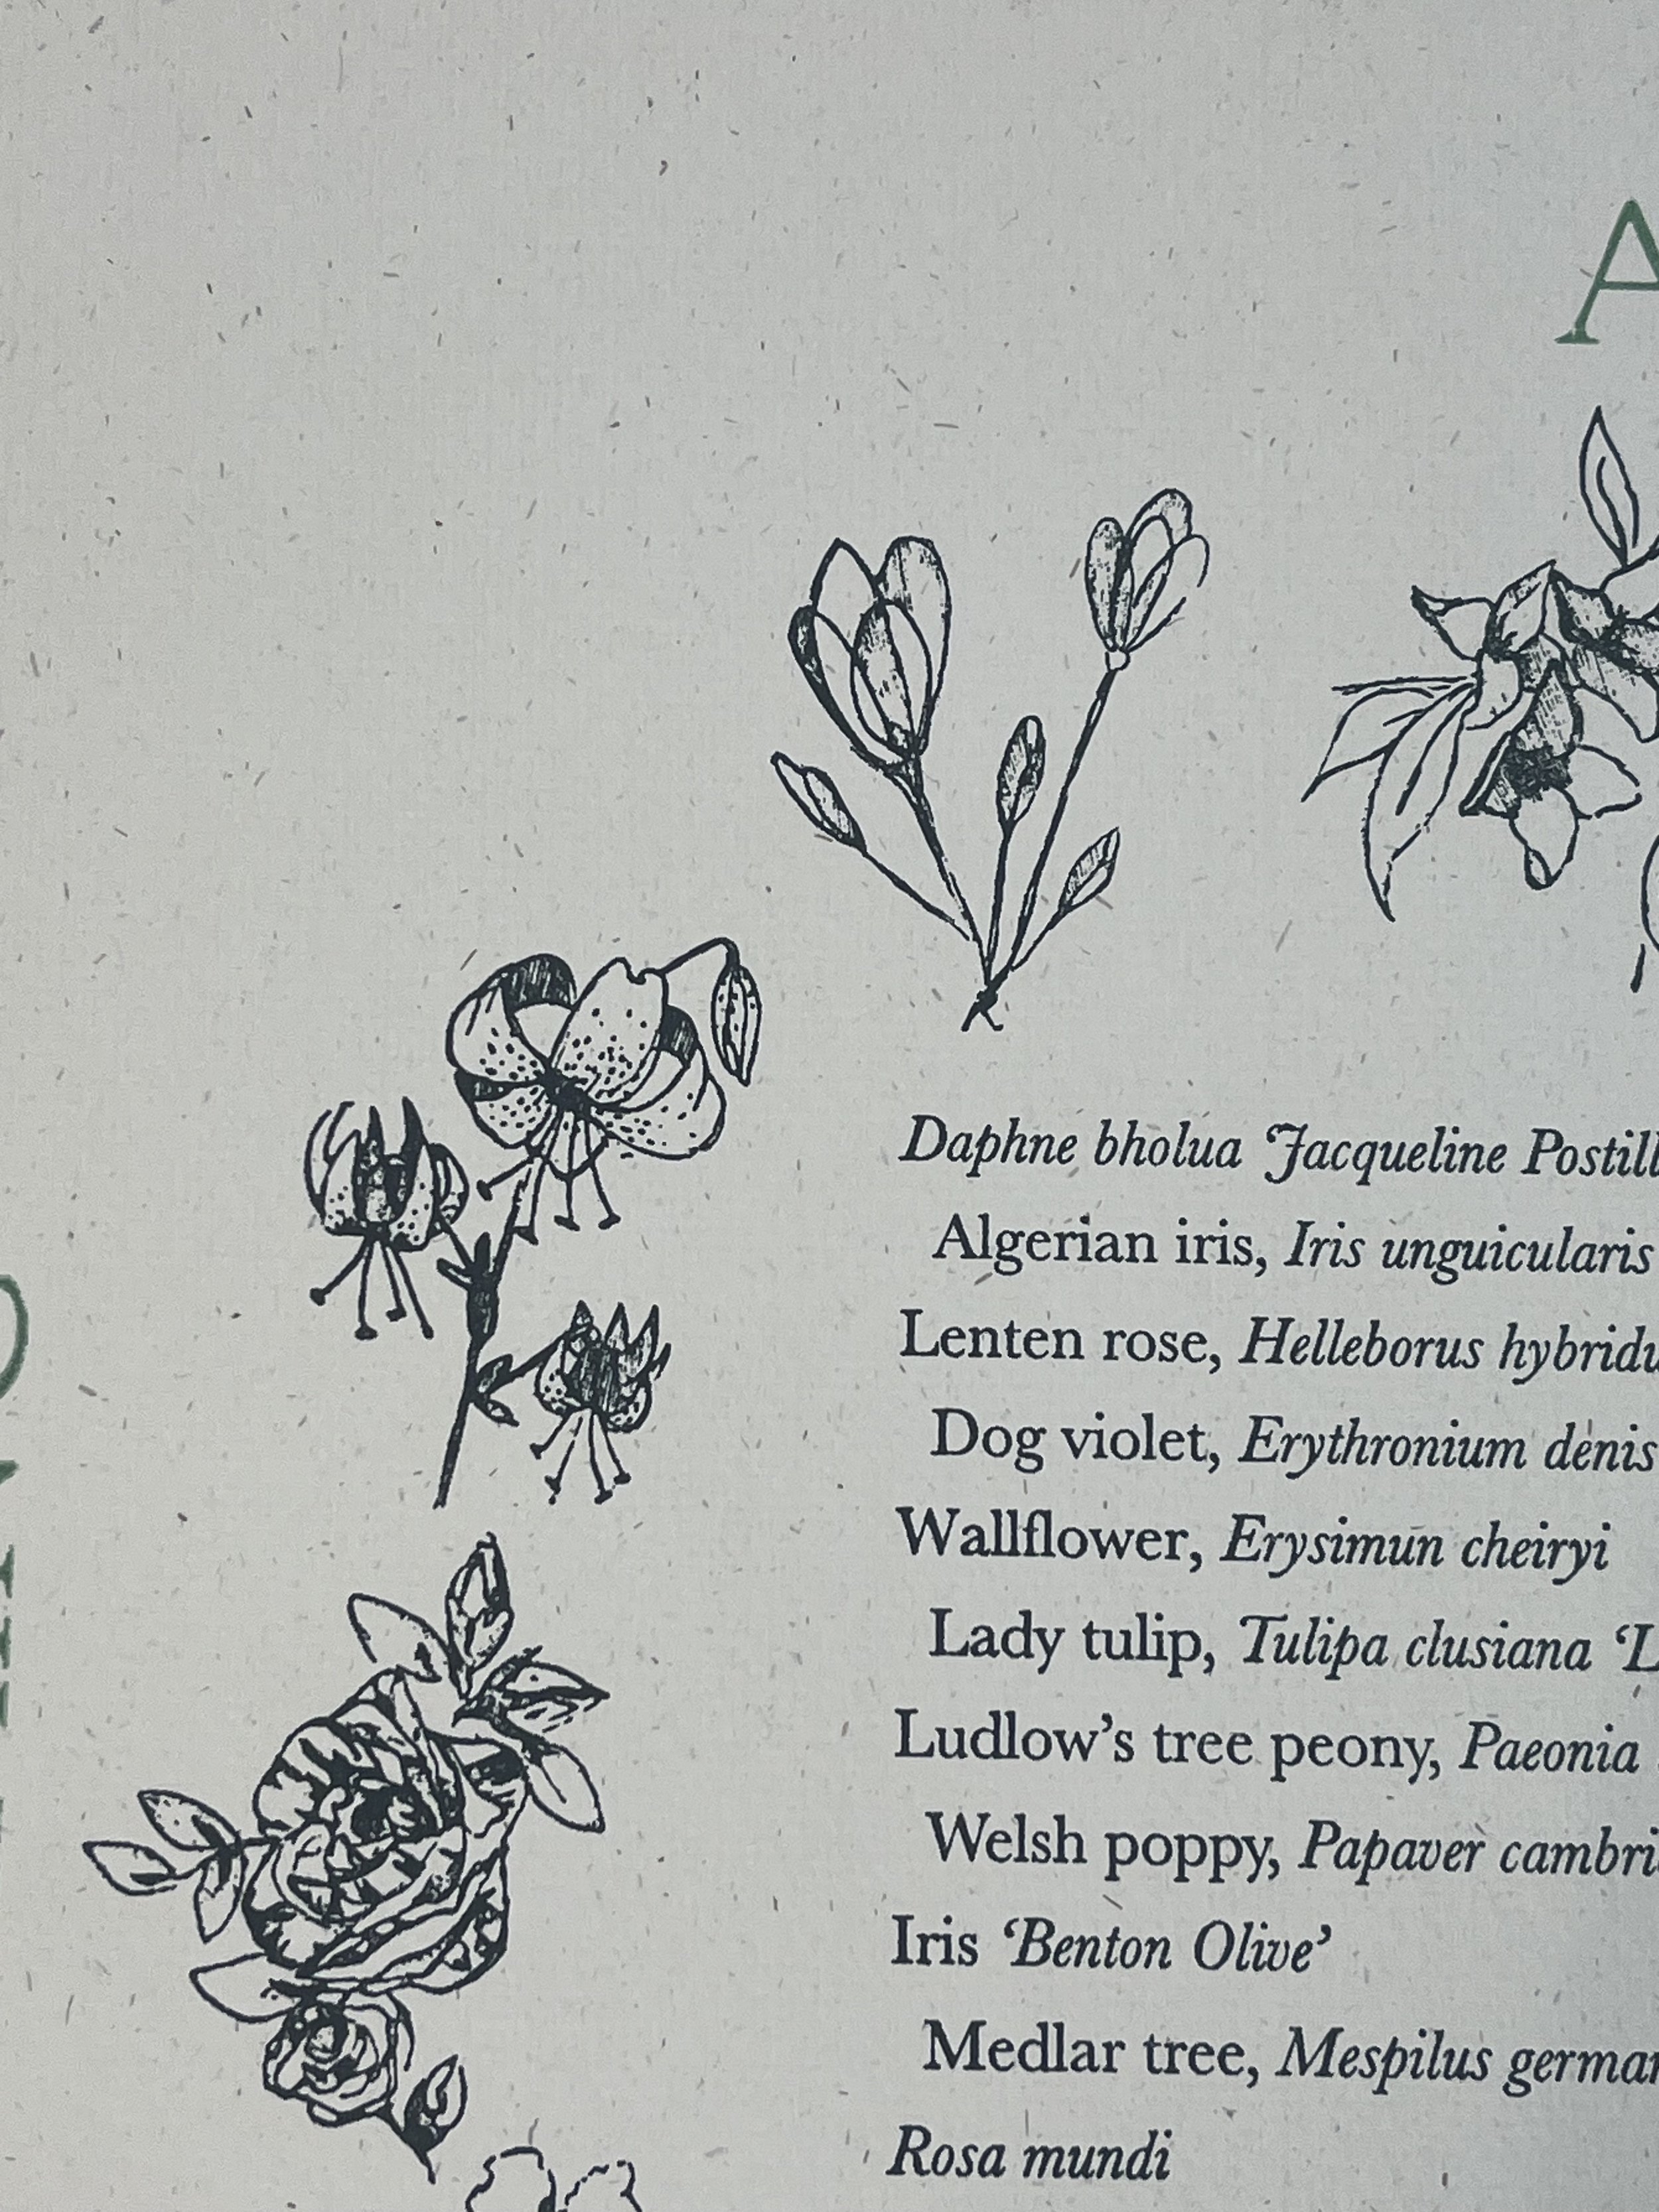 A
Daphne bholua ‘Jacqueline Postill
Algerian iris, Iris unguicularis
Lenten rose, Helleborus hybridu
Dog violet, Erythronium denis
Wallflower, Erysimun cheiryi
Lady tulip, Tulipa clusiana ‘L
Ludlow’s tree peony, Paeonia
Welsh poppy, Papaver cambri
Iris ‘Benton Olive’
Medlar tree, Mespilus german
Rosa mundi